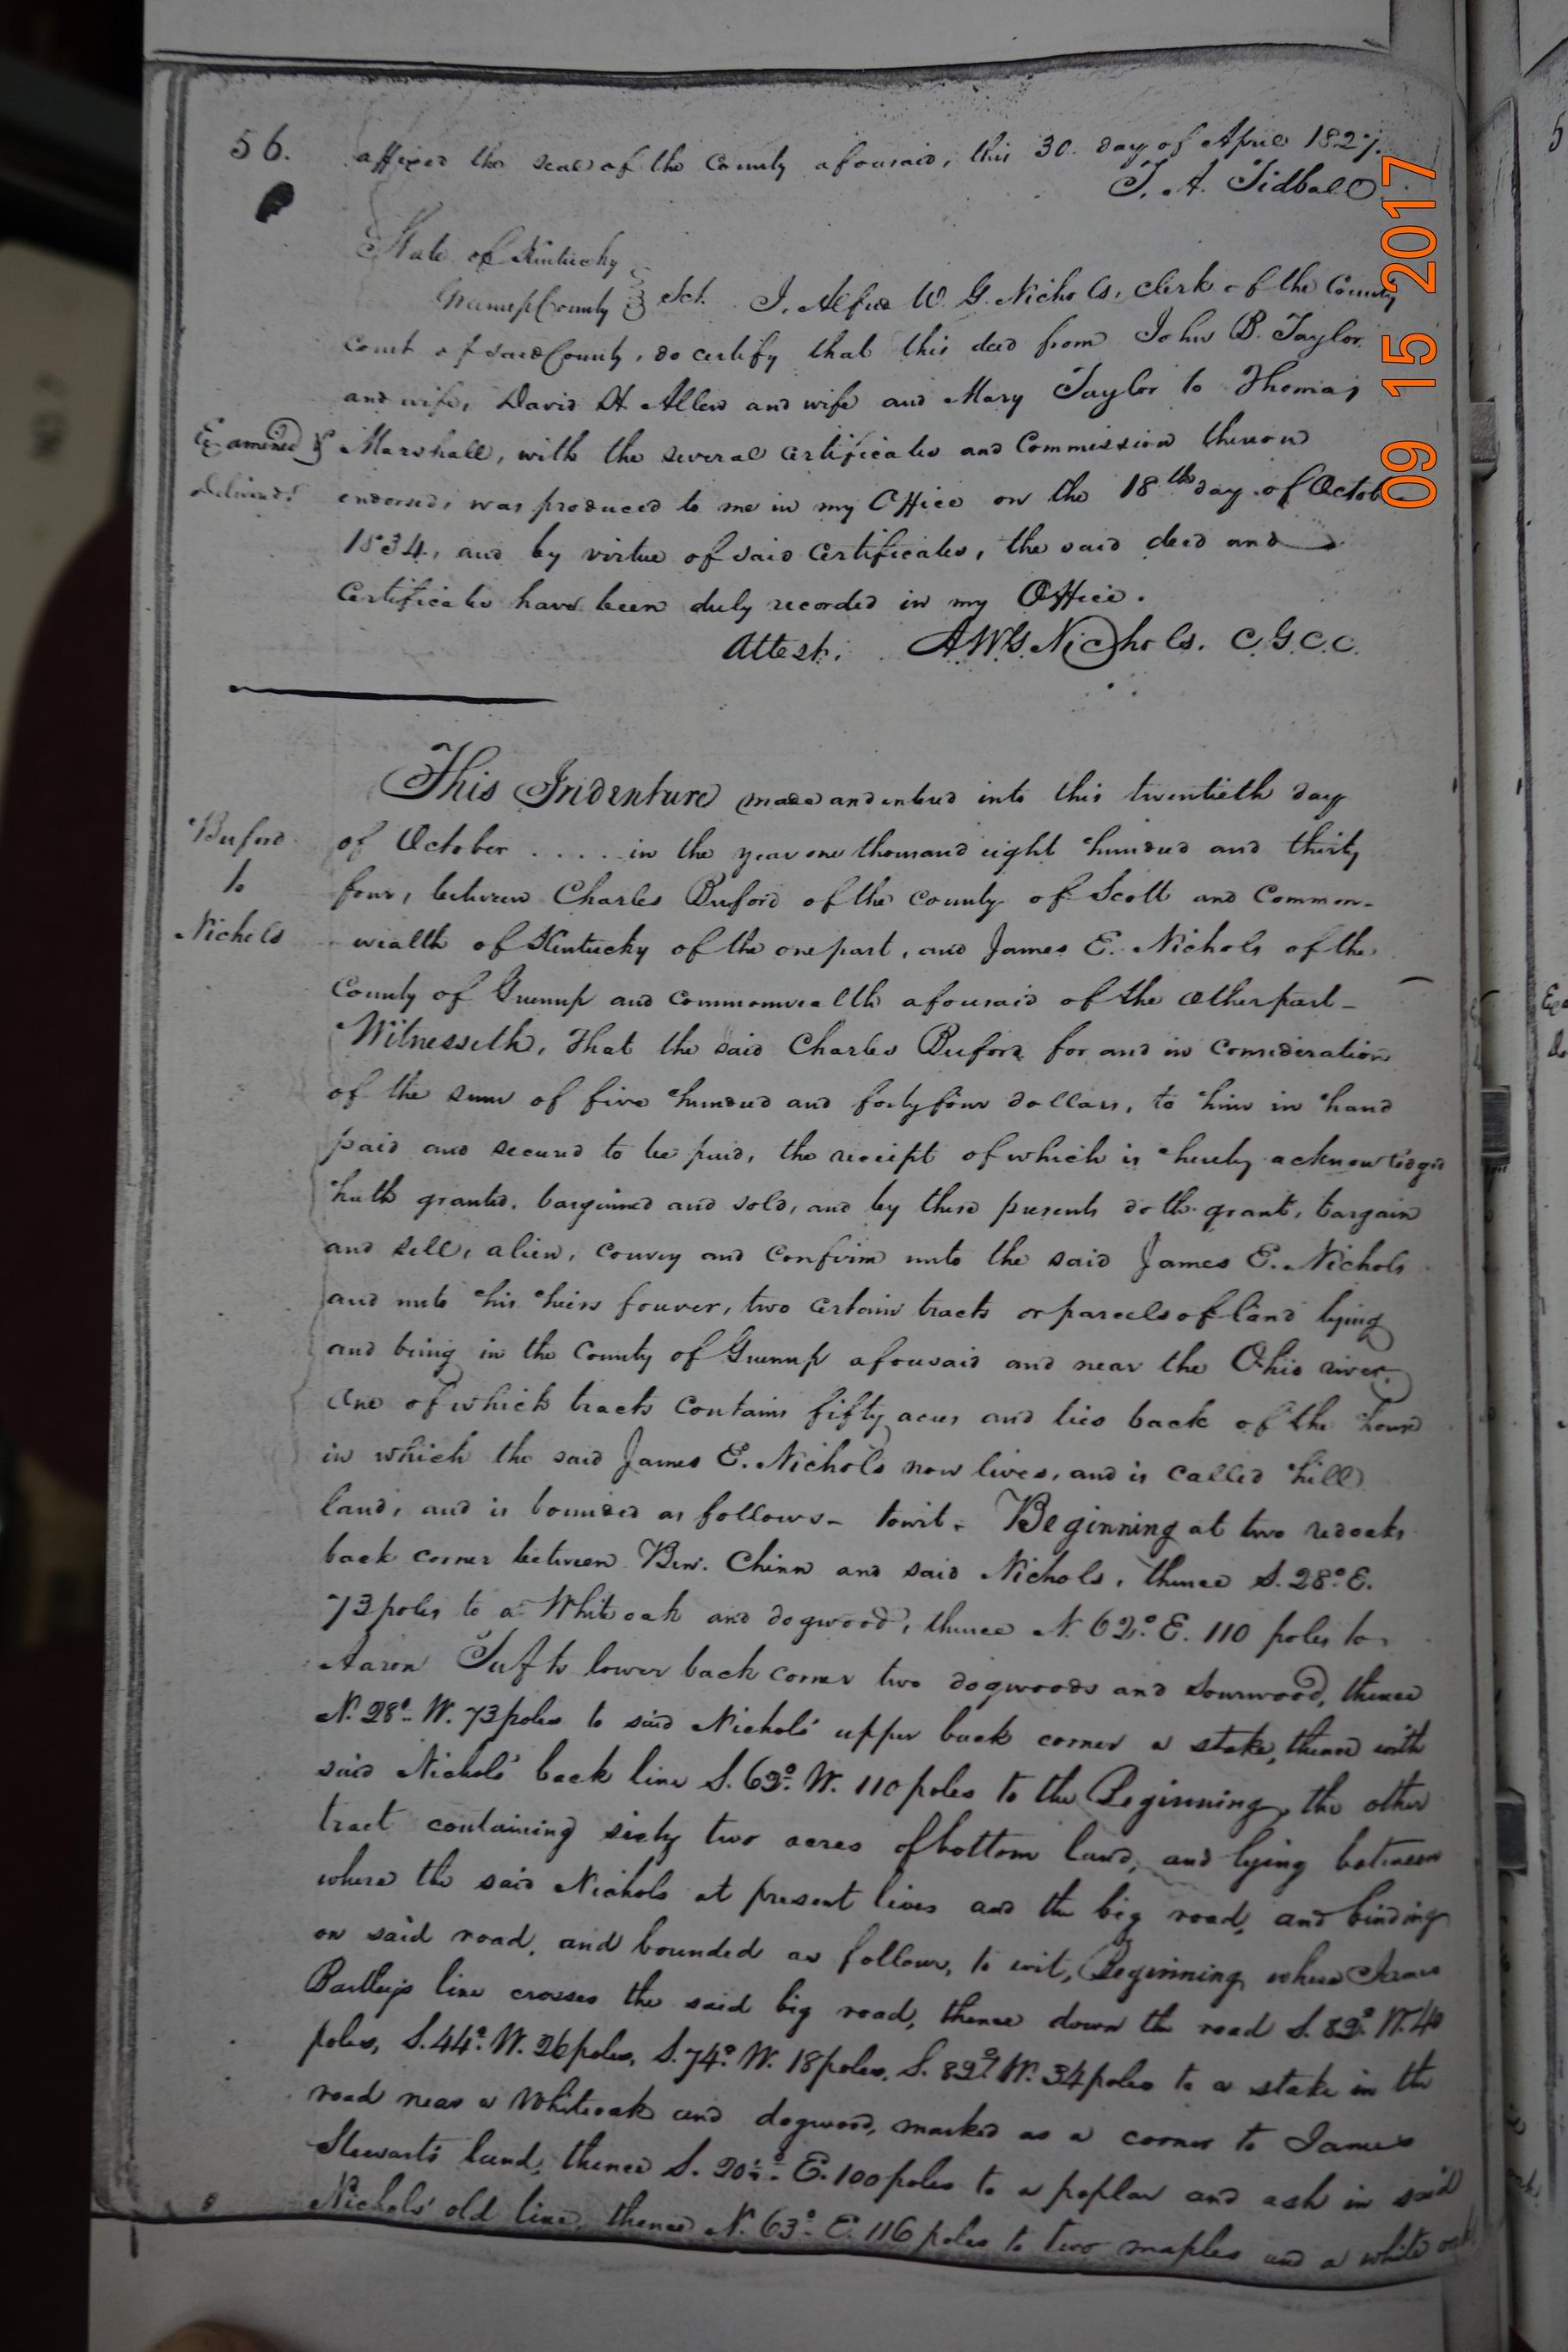 56. affixed the seal of the County aforesaid, this 30. day of April 1827.
T. A. Tidball
State of Kentucky
Greenup County Sct. I, Alfred W. G. Nichols, clerk of the County
court of said County, do certify that this deed from John B. Taylor
and wife, David H Allen and wife and Mary Taylor to Thomas
Examened & Marshall, with the several certificates and Commission thereon
delivered endorsed, was produced to me in my Office on the 18th day of Octob
1834, and by virtue of said Certificates, the said deed and
Certificates have been duly recorded in my Office.
Attest. A.W.G. Nichols. C.G.C.C.
This Indenture made and entered into this twentieth day
Buford of October ..... in the year one thousand eight hundred and thirty
to four, between Charles Buford of the county of Scott and Common-
Nichols wealth of Kentucky of the one part, and James E. Nichols of the
County of Greenup and commonwealth aforesaid of the other part-
Witnesseth, That the said Charles Buford for and in consideration
of the sum of five hundred and forty four dollars, to him in hand
paid and secured to be paid, the receipt of which is hereby acknowledged
hath granted, bargained and sold, and by these presents doth grant, bargain
and sell, alien, convey and confirm unto the said James E. Nichols
and unto his heirs forever, two certain tracts or parcels of land lying
and being in the County of Greenup aforesaid and near the Ohio river.
One of which tracts contains fifty acres and lies back of the house
in which the said James E. Nichols now lives, and is called hill
land, and is bounded as follows- towit- Beginning at two redoaks
back corner between Ben. Chinn and said Nichols, thence S. 28° E.
73 poles to a White oak and dogwood, thence N. 62° E. 110 poles to
Aaron Tufts lower back corner two dogwoods and sourwood, thence
N. 28° W. 73 poles to said Nichols' upper back corner a stake, thence with
said Nichols' back line S. 62° W. 110 poles to the Beginning, the other
tract containing sixty two acres of bottom land, and lying between
where the said Nichols at present lives and the big road, and binding
on said road, and bounded as follows, to wit, Beginning where James
Bartley's line crosses the said big road, thence down the road S. 82° W. 40
poles, S. 44° W. 26 poles, S. 74° W. 18 poles, S. 82° W. 34 poles to a stake in the
road near a Whiteoak and dogwood, marked as a corner to James
Stewart's land, thence S. 20½° E. 100 poles to a poplar and ash in said
Nichols' old line, thence N. 63° E. 116 poles to two maples and a white oak
09 15 2017